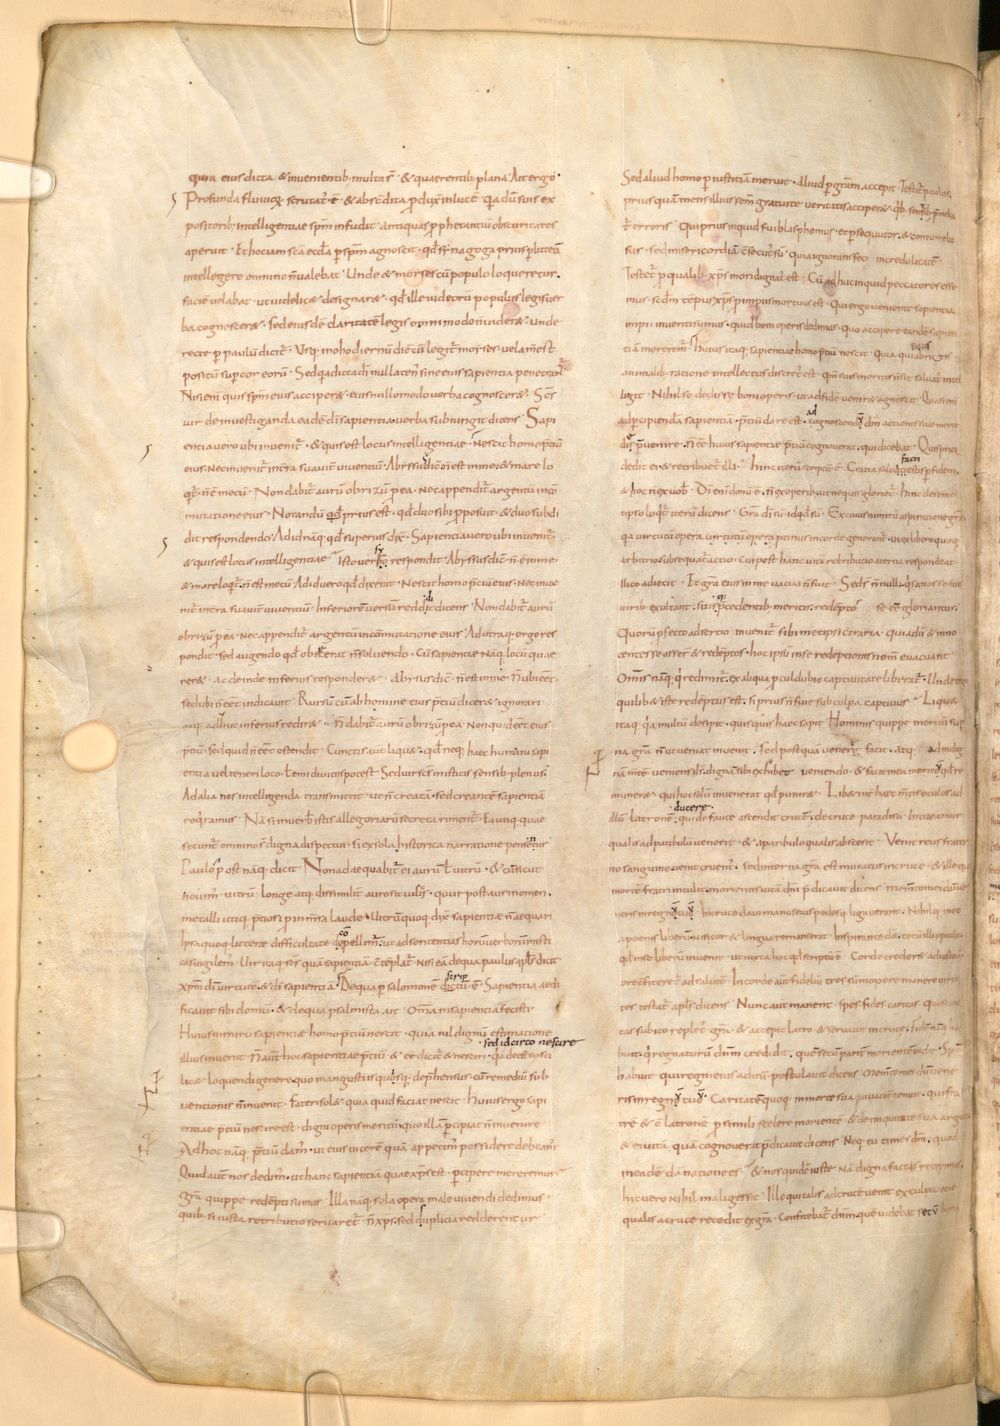 quia eius dicta & inuenientib; multa st̄ · & quaerentib; plana · Ait ergo ·
Profunda fluuiorū scrutat᷒ ē · & abscondita produxit in lucē · Quia dū suis ex
positorib; intelligentiae sp̄m infudit · antiquas prophetantiū obscuritates
aperuit · Et hoc iam sc̄a eccl̄a per sp̄m agnoscit · qđ synagoga prius per litterā
intellegere omnino n̄ ualebat · Unde & moyses cū populo loqueretur ·
facie uelabat · ut uidelic& designar& · qđ ille iudeorū populus legis uer
ba cognoscer& · sed eiusdē claritatē legis omnimodo n̄ uider& · Unde
recte per paulū dicit᷒ · Usq; in hodiernū diē cū legit᷒ moyses · uelam̄ est
positū sup cor eorū · Sed quia dicta dī nullaten᷒ sine eius sapientia penetrant᷒
Nisi enī quis sp̄m eius acceper& · eius nullo modo uerba cognoscer& · Sc̄s
uir de inuestiganda eadē dī sapientia uerba subiungit dicens · Sapi
entia uero ubi inuenit᷒ · & quis est locus intelligentiae · Nescit homo p̄tiū
eius · Nec inuenit᷒ in t̄ra suauit̄ uiuentiū · Abyssus dic̄ n̄ est in me · & mare lo
quit᷒ · n̄ ē mecū · Non dabit᷒ aurū obrizū p ea · nec appendit᷒ argentū in cō
mutatione eius · Notandū qđ prius est · qđ duo sibi proposuit · & duo subdi
dit respondendo · Ad id namq; qđ superius dix̄ · Sapientia uero ubi inuenit᷒ ·
& quis est locus intelligentiae · Isto uersu respondit · Abyssus dic̄ · n̄ ē in me ·
& mare loquit᷒ · n̄ est mecū · Ad id uero qđ dixerat · Nescit homo p̄tiū eius · nec inue
nit᷒ in t̄ra suauit̄ uiuentiū · Inferiorē uersū reddidit dicens · Non dabit᷒ aurū
obrizū p ea · nec appendit᷒ argentū in cōmutatione eius · Ad utraq; ergo res
pondit · sed augendo qđ obiecerat n̄ soluendo · Cū sapientiae namq; locū quae
rer& · ac deinde inferius responder& · Abyssus dic̄ · n̄ est in me · N̄ ubi eēt ·
sed ubi n̄ eēt indicauit · Rursū cū ab homine eius p̄tiū dicer& ignorari ·
atq; adhuc inferius redir& · N̄ dabit᷒ aurū obrizū p ea · Non quid eēt eius
p̄tiū · sed quid n̄ eēt ostendit · Cunctis aut̄ liqu& · qđ neq; haec humana sapi
entia uel teneri loco · ł emi diuitiis potest · Sed uir sc̄s misticis sensib; plenus ·
Ad alia nos intelligenda transmittit · ut n̄ creatā · sed creantē sapientiā
req̄ramus · Nā si in uerbis istis allegoriarū secreta riment᷒ · Ea unq; quae
secunt᷒ omnino s̄ digna dispectui · si ex sola historica narratione pensent᷒
Paulo p̄ost namq; dicit · Non adaequabit᷒ ei aurū ł uitrū · & cū n̄ sicut
nouim᷒ uitrū longe atq; dissimilit̄ auro sit uilis · cur post auri nomen ·
metalli utiq; p̄tiosi pro immensa laude · Uitrū quoq; dix̄ sapientiae n̄ aequari
Ipsa quoq; litterae difficultate compellim᷒ · ut ad sententias horū uerborū misti
cas uigilem᷒ · Uir itaq; sc̄s quā sapientiā cōtemplat᷒ nisi eā de qua paulus apl̄s dicit
xp̄m dī uirtutē · & dī sapientiā · De qua p salomonē scriptū ē · Sapientia aedi
ficauit sibi domū · & de qua psalmista ait · Om̄a in sapientia fecisti ·
Huius nimirū sapientiae homo p̄tiū nescit · quia nil dignū estimatione
illius inuenit · N̄ aut̄ hoc sapientiae p̄tiū & eē dicit᷒ & nesciri · sed idcirco nescire
licae loquendi genere · quo in angustiis quisq; deprehensus · cū remediū sub
uentionis n̄ inuenit · fateri sol& · quia quid faciat nescit · Huius ergo sapi
entiae p̄tiū nescire est · digni operis meritū · quo illā p̄cipiat n̄ inuenire
Ad hoc namq; p̄tiū dam᷒ · ut eius uice rē quā appetim᷒ possidere debeam᷒
Quid aut̄ nos dedim᷒ · ut hanc sapientiā quae xp̄s est · p̄cipere mereremur
Gr̄a quippe redempti sumus · Illa namq; sola opera male uiuendi dedimus ·
quib; si iusta retributio seruaret᷒ · n̄ xp̄s · sed supplicia redderentur
Sed aliud homo p iustitiam meruit · aliud p gr̄am accepit · Testat᷒ paulus
prius quā mens illius sem& gratuite ueritatis accip& · quib; sensib; p̄meba
t᷒ erroris · Qui prius inquid fui blasphemus · et persequutor · & contumelio
sus · sed misericordiā cōsecut᷒ sū · quia ignorans feci incredulitate ·
Testat᷒ p qualib; xp̄s mori dignat᷒ est · Cū adhuc inquid peccatores esse
mus · scdm tēpus xp̄s p impiis mortuus est · Qui ergo ueniente sapientia
impii inuenti sumus · quid boni operis dedimus · quo accipere eandē sapien
tiā merem᷒ · Huius itaq; sapientiae homo p̄tiū nescit · Quia quis a brutis
animalib; ratione intellectus discret᷒ est · quā suis meritis n̄ sit saluat᷒ intel
legit · Nihil se dedisse boni operis · ut ad fidē ueniret agnoscit · Quasi enī
ad percipiendā sapientiā · p̄tiū dare est · ad cognoscendū dm̄ actu ens suae merito
dis p̄uenire · N̄ ēē huius sapientiae p̄tiū cognouerat · qui dicebat · Quis prior
dedit ei · & retribuet᷒ illi · Hinc iterū scriptū ē · Gratia salui facti estis p fidem ·
& hoc n̄ ex uob᷒ · Dī enī donū ē · n̄ ex operib; ut ne quis gloriet᷒ · Hinc de seme
tipso loquit᷒ iterū dicens · Gr̄a dī sū id qđ sū · Ex cuius nimirū aspiratione gr̄a
quia uirtutū opera p̄tinus in corde generant᷒ · ut ex libero quoq;
arbitrio subsequat᷒ actio · Cui post hanc uitā retributio aeterna respondeat ·
Illico adiecit · Et gr̄a eius in me uacua n̄ fuit · Sed s̄ n̄nulli · qui saluos se suis
uirib; exultant · suisq; p̄cedentib; meritis redemptos se eē gloriantur ·
Quorū p̄fecto adsertio inuenit᷒ sibimetipsi cōtraria · quia dū & inno
centes se asser & redemptos · hoc ipsū in se redemptionis nom̄ euacuant
Om̄is namq; qui redimit᷒ · ex aliqua p culdubio captiuitate liberat᷒ · Unde
quilib& iste redemptus est · si prius n̄ fuit sub culpa captiuus · Liqu&
itaq; quia multū desipit · quisquis haec sapit · Hominis quippe meritū sup
na gr̄a n̄ ut ueniat inuenit · sed postquā uenerit facit · atq; ad indig
nā mentē ueniens dī · dignā sibi exhibet ueniendo · & facit in ea meritū qđ re
muner& · qui hoc solū inuenerat qđ punir& · Lib& int̄ haec mentis oculos ad
illū latronē ducere · qui de fauce ascendit crucē · de cruce paradisū · Intueamur
qualis ad patibulū uenerit · & a patibulo qualis abscessit · Venit reus frater
no sanguine uenit cruent᷒ · sed interna gr̄a est mutatus in cruce · & ille qui
mortē fratri intulit · morientis uitā dnī p̄dicauit dicens · Memento mei dū uene
ris in regnū tuū · In cruce claui manus eius pedesq; ligauerant · Nihilq; in eo
a poenis liberū nisi cor & lingua remanserat · Inspirante dō · totū illi optulit ·
qđ in se liberū inuenit · ut iuxta hoc qđ scriptū ē · Corde creder& ad iustitiā ·
ore cōfiteret᷒ ad salutē · In corde aut̄ fideliū tres sumopere manere uirtu
tes testat᷒ apl̄s dicens · Nunc aut̄ manent · spes fides caritas · Quas cunc
tas subito replet᷒ gr̄a · & accepit latro & seruauit in cruce · Fidē namq; ha
buit · qui regnaturū dnm̄ credidit · quē secū parit̄ morientē uidit · Spē
habuit · qui regni eius aditū postulauit dicens · Memento mei dū uene
ris in regnū tuū · Caritatē quoq; in morte sua uiuacit̄ tenuit · qui fra
trē & cōlatronē p simili scelere morientē · & de iniquitate sua arguit
& ei uitā quā cognouerat p̄dicauit dicens · Neq; tu times dm̄ · quod
in eadē damnatione es · & nos quidē iuste · Nā digna factis recipimus ·
hic uero nihil mali gessit · Ille qui talis ad crucē uenit ex culpa · ecce
qualis a cruce recedit ex gr̄a · Confitebat᷒ dnm̄ · quē uidebat secū huma